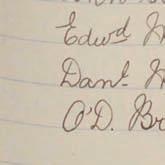 Edwd
Danl
O'D. Br